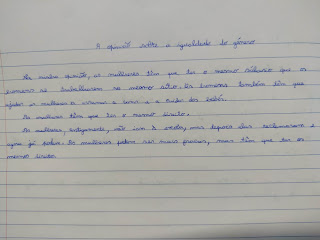 A opinião sobre a igualdade do género
Na minha opinião, as mulheres têm que ter o mesmo salário que os
homens se trabalharem no mesmo sítio. Os homens também têm que
ajudar as mulheres a e com a dos
As mulheres têm que ter o mesmo direito.
As mulheres, antigamente, não iam à escola, mas depois elas reclamaram e
agora já podem. As mulheres podem ser mais fracas, mas têm que ter os
mesmo direito.